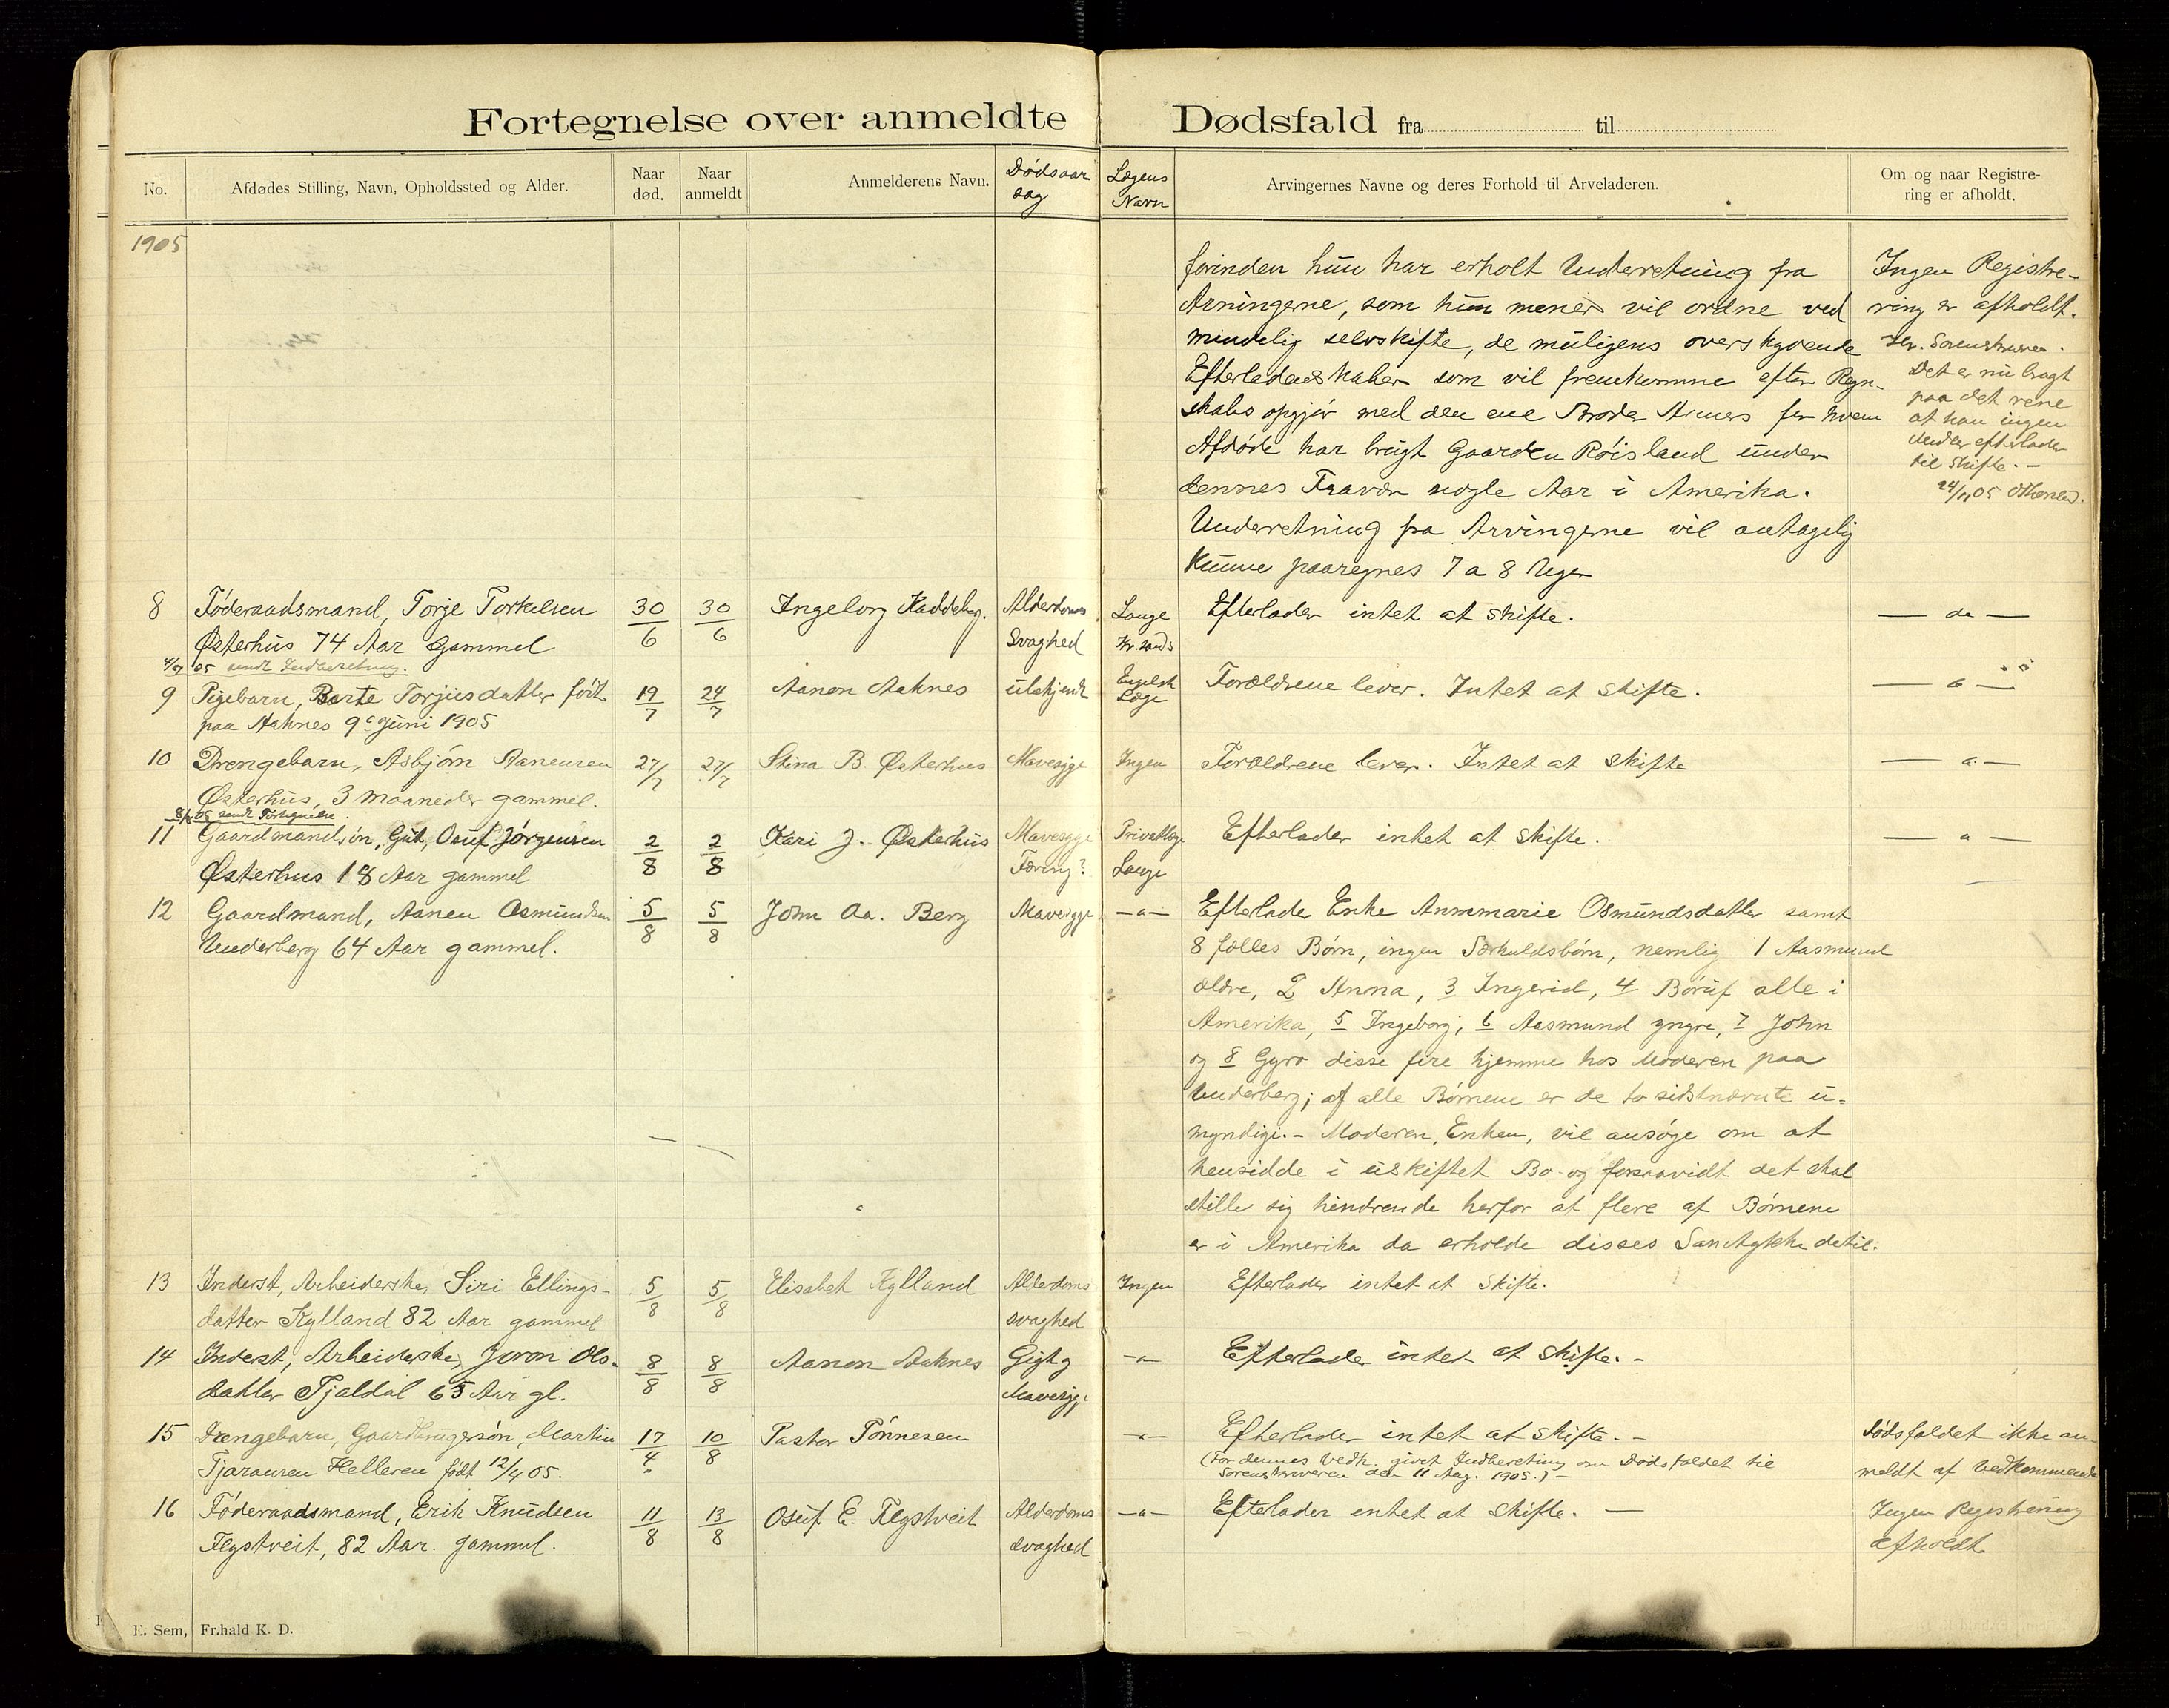 Fortegnelse over anmeldte Dødsfald fra til
No.
Afdødes Stilling, Navn, Opholdssted og Alder.
Naar død.
Naar anmeldt
Anmelderens Navn.
Dødsaar
sag
Lægens
Navn
Arvingernes Navne og deres Forhold til Arveladeren.
Om og naar Registre-
ring er afholdt.
1905
forinden hun har erholt Underretning fra
Arvingerne, som hun mener vil ordne ved
mindelig selvskifte, de muligens overskydende
Efterladenskaber som vil fremkomme efter Regn-
skabs opgjør med den ene Broder for hvem
Afdøde har brugt Gaarden Røisland under
dennes Fravær nogle Aar i Amerika.
Underretning fra Arvingerne vil antagelig
kunne paaregnes 7 a 8 Uger
Ingen Registre-
ring er afholdt.
Hr. Sorenskriver.
Det er nu bragt
paa det rene
at han ingen
Midler efterlader
til Skifte. -
24/11 05
8 Føderaadsmand, Torje Torkelsen 30/6 30/6 Ingeborg Haddeberg. Alderdoms Lange Efterlader intet at skifte. — do —
Østerhus 74 Aar Gammel Svaghed Kr.sands
4/7 05 sendt Indberetning.
9 Pigebarn, Berte Torjusdatter født 19/7 24/7 Aanon Aaknes ubekjendt Engelsk Læge Forældrene lever. Intet at skifte. — " —
paa Aaknes 9de Juni 1905
10 Drengebarn, Asbjørn Aanensen 27/7 27/7 Stina B. Østerhus Mavesyge Ingen Forældrene lever. Intet at skifte — " —
Østerhus, 3 maaneder gammel.
8/8 05 sendt Fortegnelse.
11 Gaardmandsøn, Gut, Osuf Jørgensen 2/8 2/8 Kari J. Østerhus Mavesyge Privatlæge Efterlader intet at skifte. — " —
Østerhus 18 Aar gammel Tæring? Lange
12 Gaardmand, Aanen Osmundsen 5/8 5/8 John Aa. Berg Mavesyge — " — Efterlader Enke Annmarie Osmundsdatter samt
Underberg 64 Aar gammel.
8 fælles Børn, ingen Særkuldsbørn, nemlig 1 Aasmund
ældre, 2 Anna, 3 Ingerid, 4 Børuf alle i
Amerika, 5 Ingeborg, 6 Aasmund yngre, 7 John
og 8 Gyro disse fire hjemme hos Moderen paa
Underberg; af alle Børnene er de to sidstnævnte u-
myndige. - Moderen, Enken, vil ansøge om at
hensidde i uskiftet Bo og forsaavidt det skal
stille sig hindrende herfor at flere af Børnene
er i Amerika da erholde disses Samtykke dertil.
13 Inderst, Arbeiderske, Siri Ellings- 5/8 5/8 Elisabet Kylland Alderdoms Ingen Efterlader intet at skifte.
datter Kylland 82 Aar gammel svaghed
14 Inderst, Arbeiderske, Joron Ols- 8/8 8/8 Aanon Aaknes Gigt og — " — Efterlader intet at skifte. -
datter Tjaldal 65 Aar gl. Mavesyge
15 Drengebarn, Gaardbrugersøn, Martin 17/4 10/8 Pastor Tønnesen — " — Efterlader intet at skifte. - Dødsfaldet ikke an-
Tjaransen Helleren født 12/4 05. (For dennes Vedk. givet Indberetning om Dødsfaldet til meldt af Vedkommende
Sorenskriveren den 11 Aug. 1905.) -
16 Føderaadsmand, Erik Knudsen 11/8 13/8 Osuf E. Flystveit Alderdoms — " — Efterlader intet at skifte. — Ingen Registrering
Flystveit, 82 Aar. gammel. svaghed afholdt
E. Sem, Fr.hald K. D.